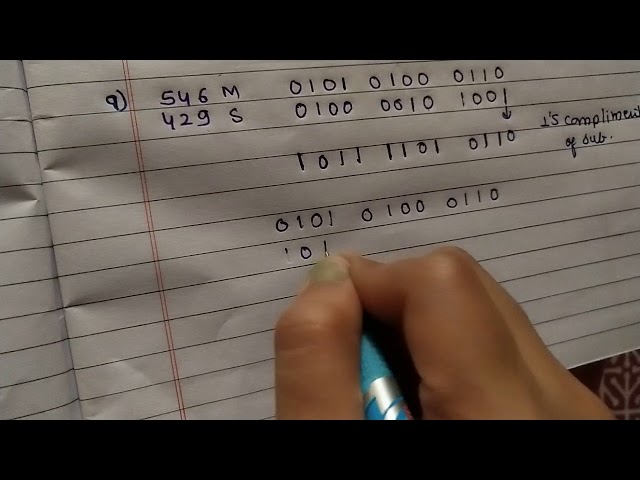 9) 546 M 0101 0100 0110
429 S 0100 0010 1001
1's compliment
of sub.
1011 1101 0110
0101 0100 0110
101